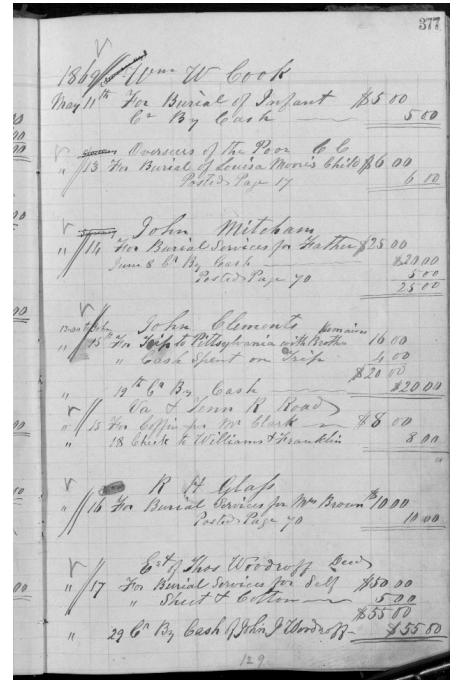 377
1869 Wm W Cook
May 11th For Burial of Infant $5 00
Cr By Cash 5 00
Overseers of the Poor C C
" 13 For Burial of Louisa Moore's Child $6 00
Posted Page 17 6 00
John Mitcham
" 14 For Burial Services for Father $25 00
June 8 Cr By Cash $20 00
Posted Page 70 5 00
25 00
John Clements
" 15th For Trip to Pittsylvania with Brothers Remains 16 00
" Cash Spent on Trip 4 00
$20 00
19th Cr By Cash $20 00
Va & Tenn R Road
" 15 For Coffin for Mr Clark $8 00
" 18 Check to Williams & Franklin 8 00
R H Glass
" 16 For Burial Services for Mrs Brown $10 00
Posted Page 70 10 00
Est of Thos Woodroff Decd
" 17 For Burial Services for Self $50 00
" Sheet & Cotton 5 00
$55 00
" 29 Cr By Cash of John J Woodroff $55 00
129